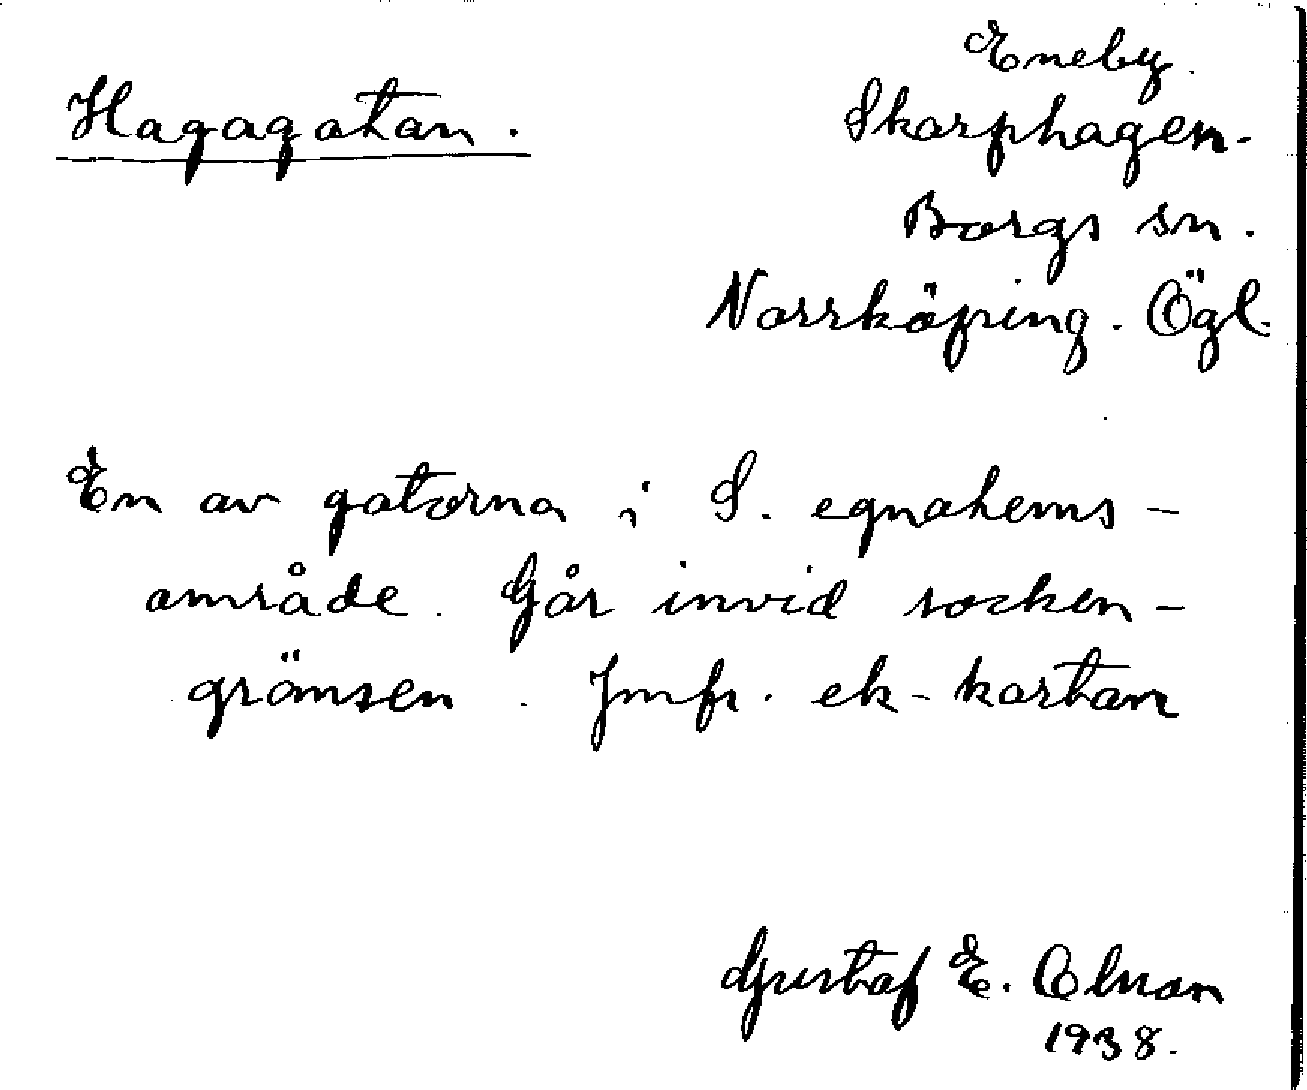 Eneby.
Hagagatan.
Skarphagen.
Borgs sn.
Norrköping. Ögl.
En av gatorna i S. egnahems-
område. Går invid socken-
gränsen. Jmfr. ek-kartan
Gustaf E. Olson
1938.